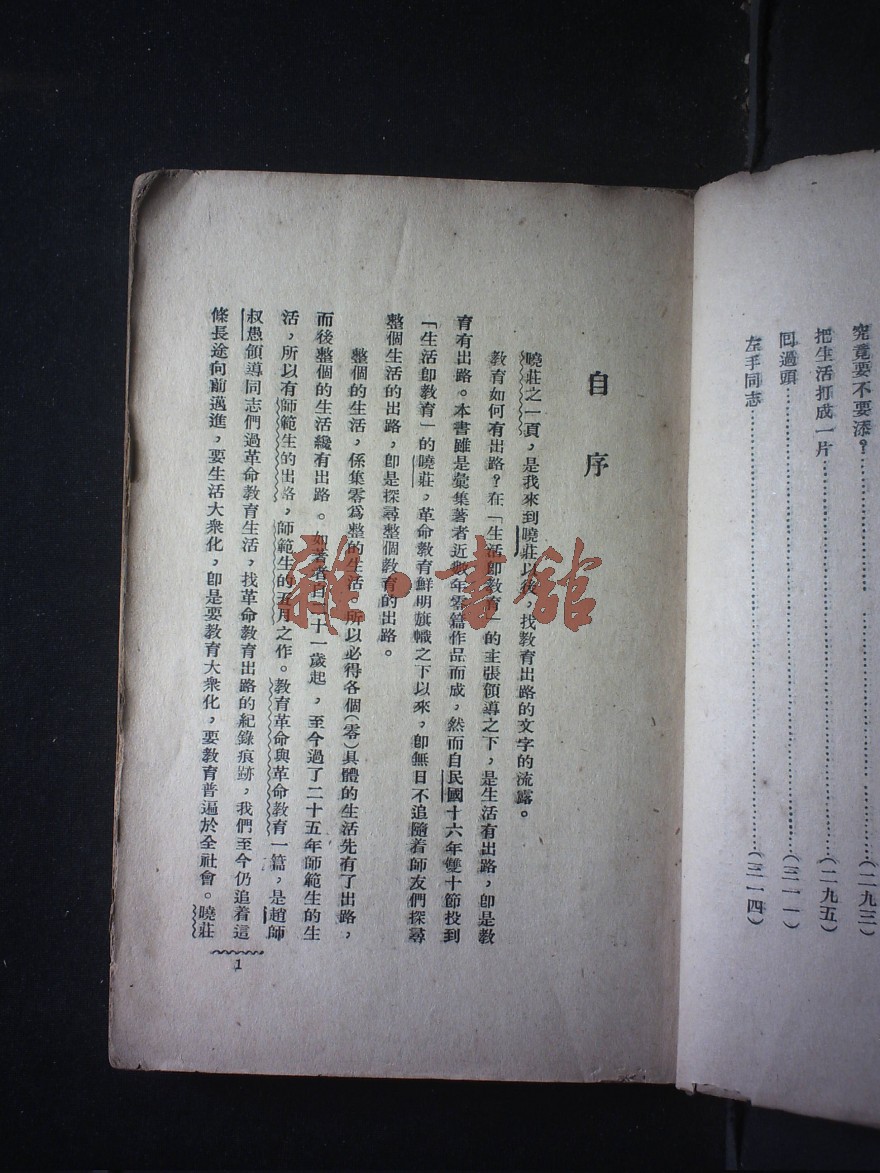 究竟要不要添?……………………(二九三)
把生活打成一片……………………(二九五)
回過頭……………………(三一一)
左手同志……………………(三一四)
自序
曉莊之一頁,是我來到曉莊以後,找教育出路的文字的流露。
教育如何有出路?在「生活卽教育」的主張領導之下,是生活有出路,卽是教
育有出路。本書雖是彙集著者近數年零篇作品而成,然而自民國十六年雙十節投到
「生活卽教育」的曉莊,革命教育鮮明旗幟之下以來,卽無日不追隨着師友們探尋
整個生活的出路,卽是探尋整個教育的出路。
整個的生活,係集零爲整的生活,所以必得各個(零)具體的生活先有了出路,
而後整個的生活纔有出路。如著者自二十一歲起,至今過了二十五年師範生的生
活,所以有師範生的出路,師範生的五月之作。教育革命與革命教育一篇,是趙師
叔愚領導同志們過革命教育生活,找革命教育出路的紀錄痕跡,我們至今仍追着這
條長途向前邁進,要生活大衆化,卽是要教育大衆化,要教育普遍於全社會。曉莊
1
雜·書館